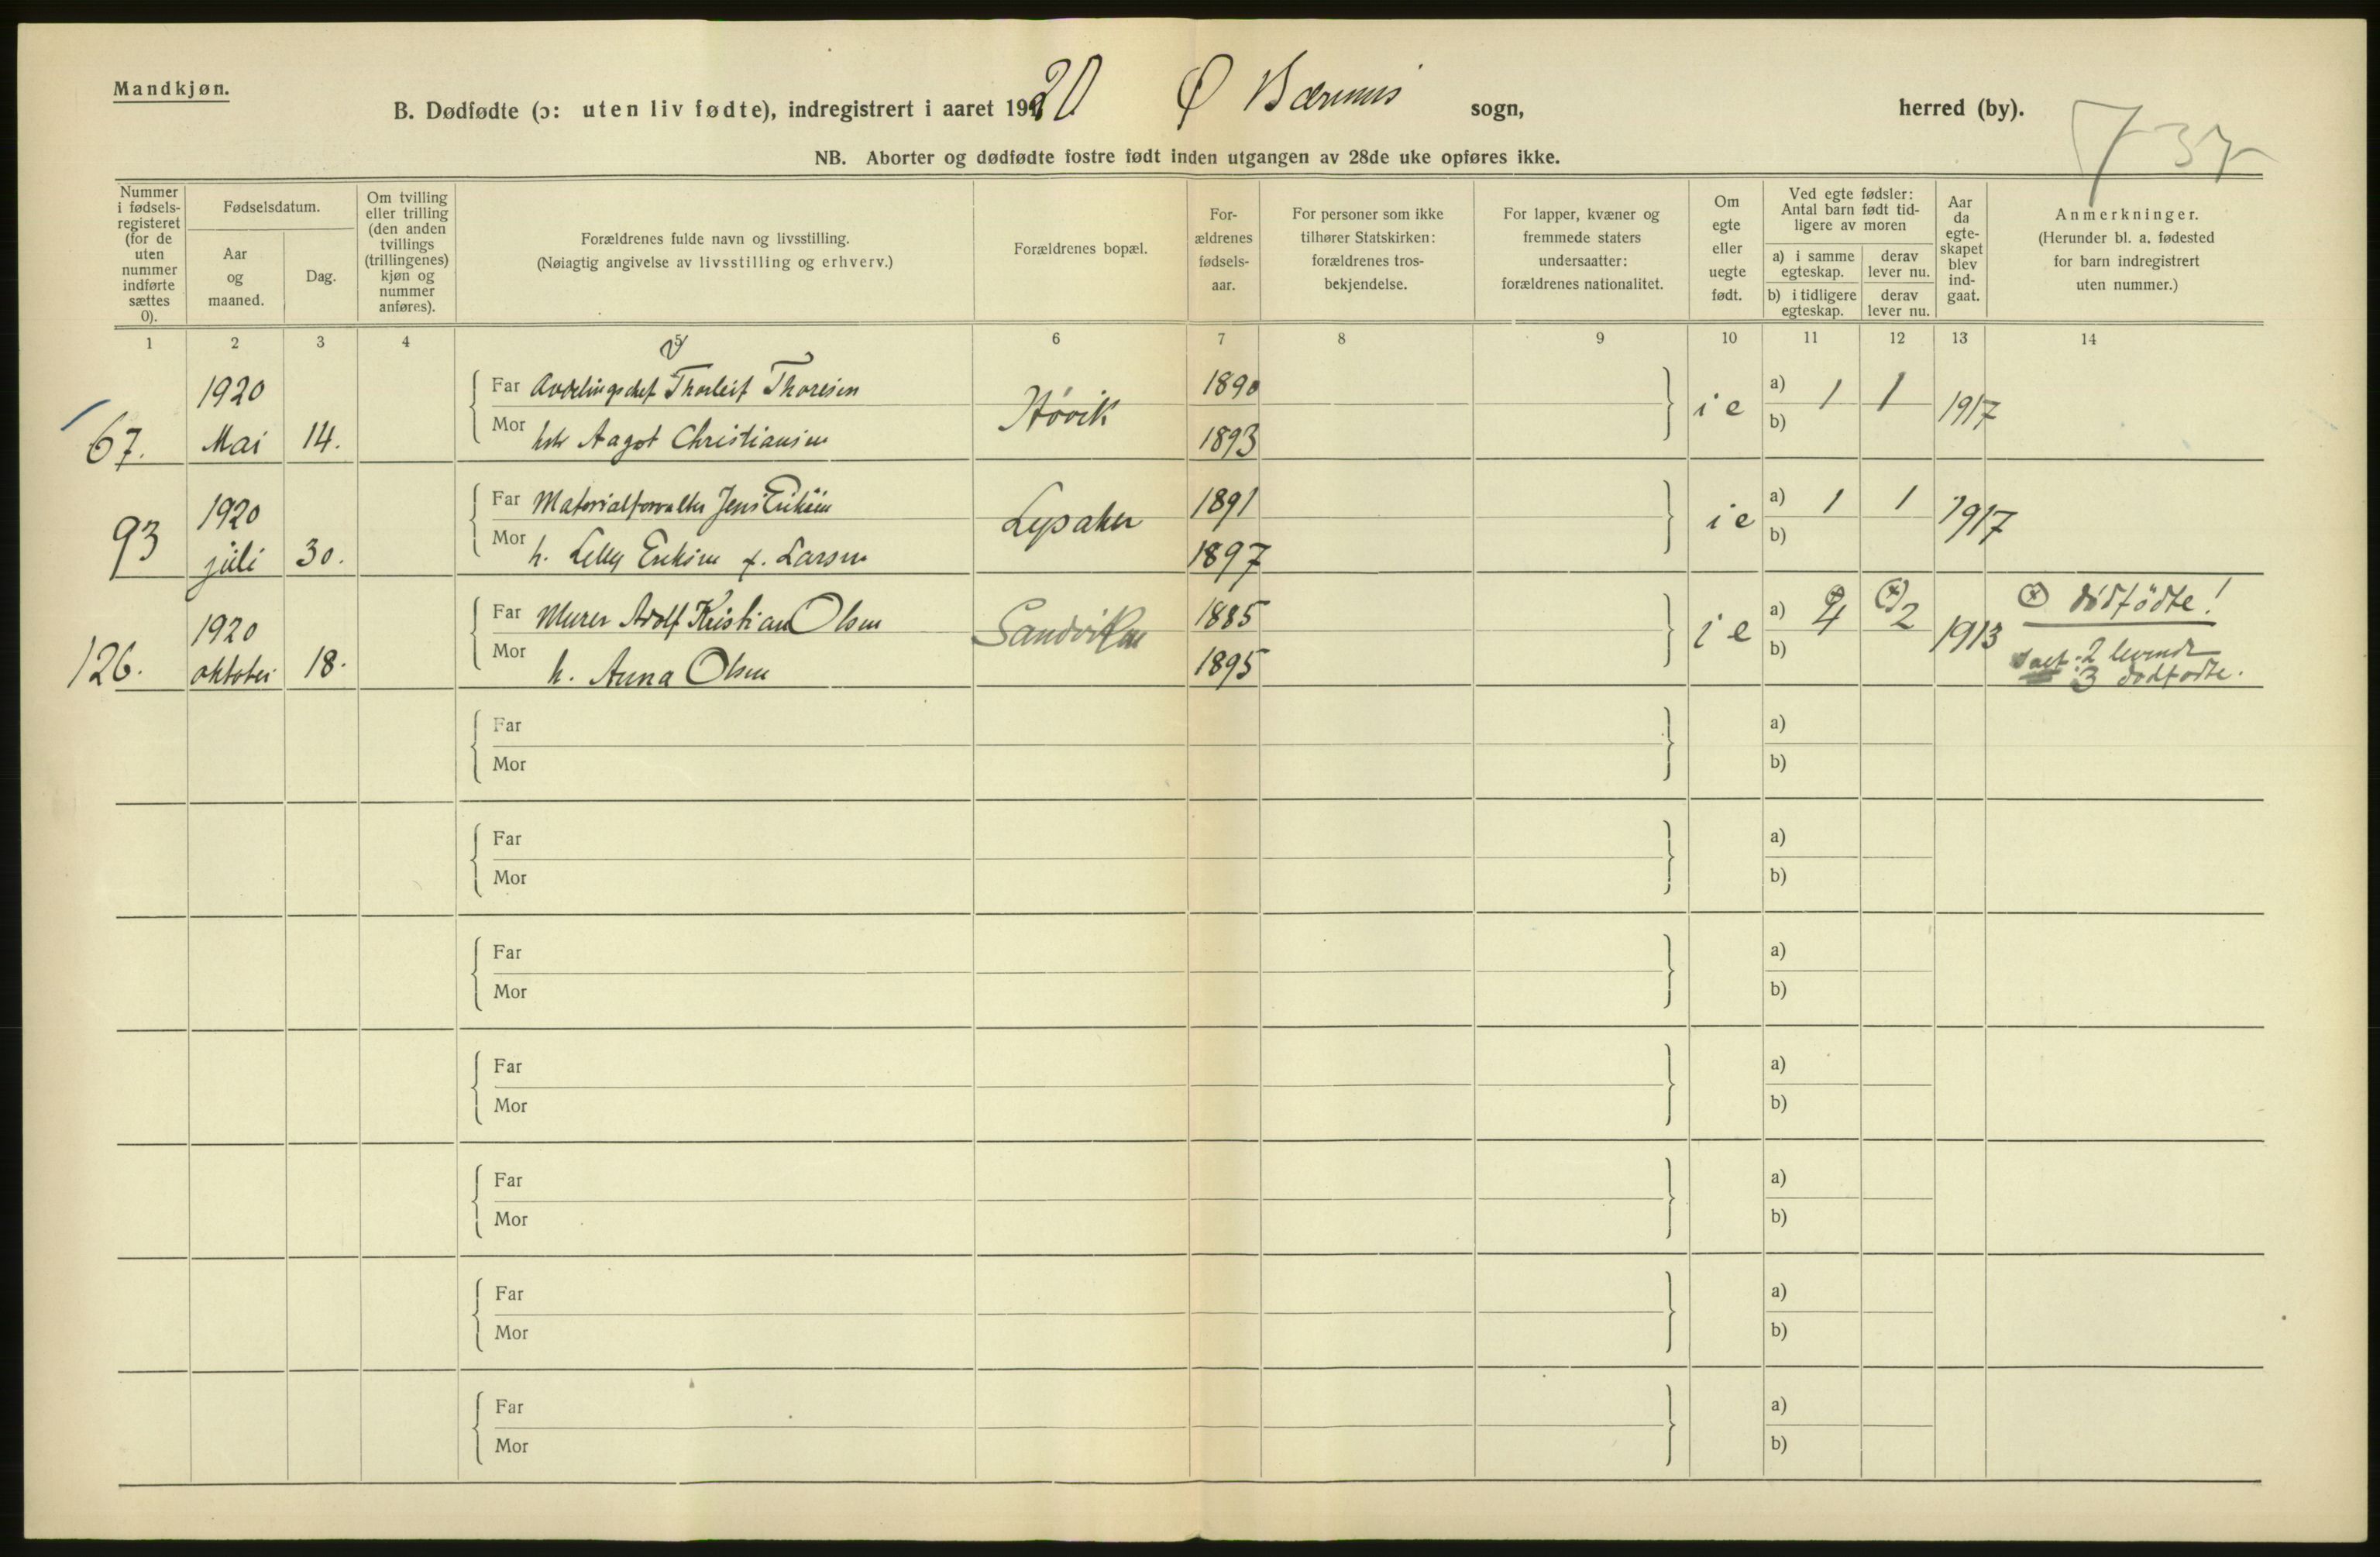 Mandkjøn.
B. Dødfødte (ɔ: uten liv fødte), indregistrert i aaret 1920 Ø Bærums sogn, herred (by).
NB. Aborter og dødfødte fostre født inden utgangen av 28de uke opføres ikke.
Nummer i fødsels-registeret (for de uten nummer indførte sættes 0).
Fødselsdatum.
Aar og maaned.
Dag.
Om tvilling eller trilling (den anden tvillings (trillingenes) kjøn og nummer anføres).
Forældrenes fulde navn og livsstilling.
(Nøiagtig angivelse av livsstilling og erhverv.)
Forældrenes bopæl.
For-ældrenes fødsels-aar.
For personer som ikke tilhører Statskirken: forældrenes tros-bekjendelse.
For lapper, kvæner og fremmede staters undersaatter: forældrenes nationalitet.
Om egte eller uegte født.
Ved egte fødsler: Antal barn født tid-ligere av moren
a) i samme egteskap.
derav lever nu.
b) i tidligere egteskap.
derav lever nu.
Aar da egte-skapet blev ind-gaat.
Anmerkninger.
(Herunder bl. a. fødested for barn indregistrert uten nummer.)
1 2 3 4 5 6 7 8 9 10 11 12 13 14
67. 1920 Mai 14.
Far Avdelingschef Thorleif Thoresen
Mor Aagot Christiansen
Høvik 1890 1893 i e a) 1 1 b) 1917
93 1920 juli 30.
Far Materialforvalter Jens Eriksen
Mor h. Lelly Eriksen f. Larsen
Lysaker 1891 1897 i e a) 1 1 b) 1917
126. 1920 oktober 18.
Far Murer Adolf Kristian Olsen
Mor h. Anna Olsen
Sandviken 1885 1895 i e a) 4 2 b) 1913
dødfødte!
2 levende
3 dødfødte.
Far a)
Mor b)
Far a)
Mor b)
Far a)
Mor b)
Far a)
Mor b)
Far a)
Mor b)
Far a)
Mor b)
Far a)
Mor b)